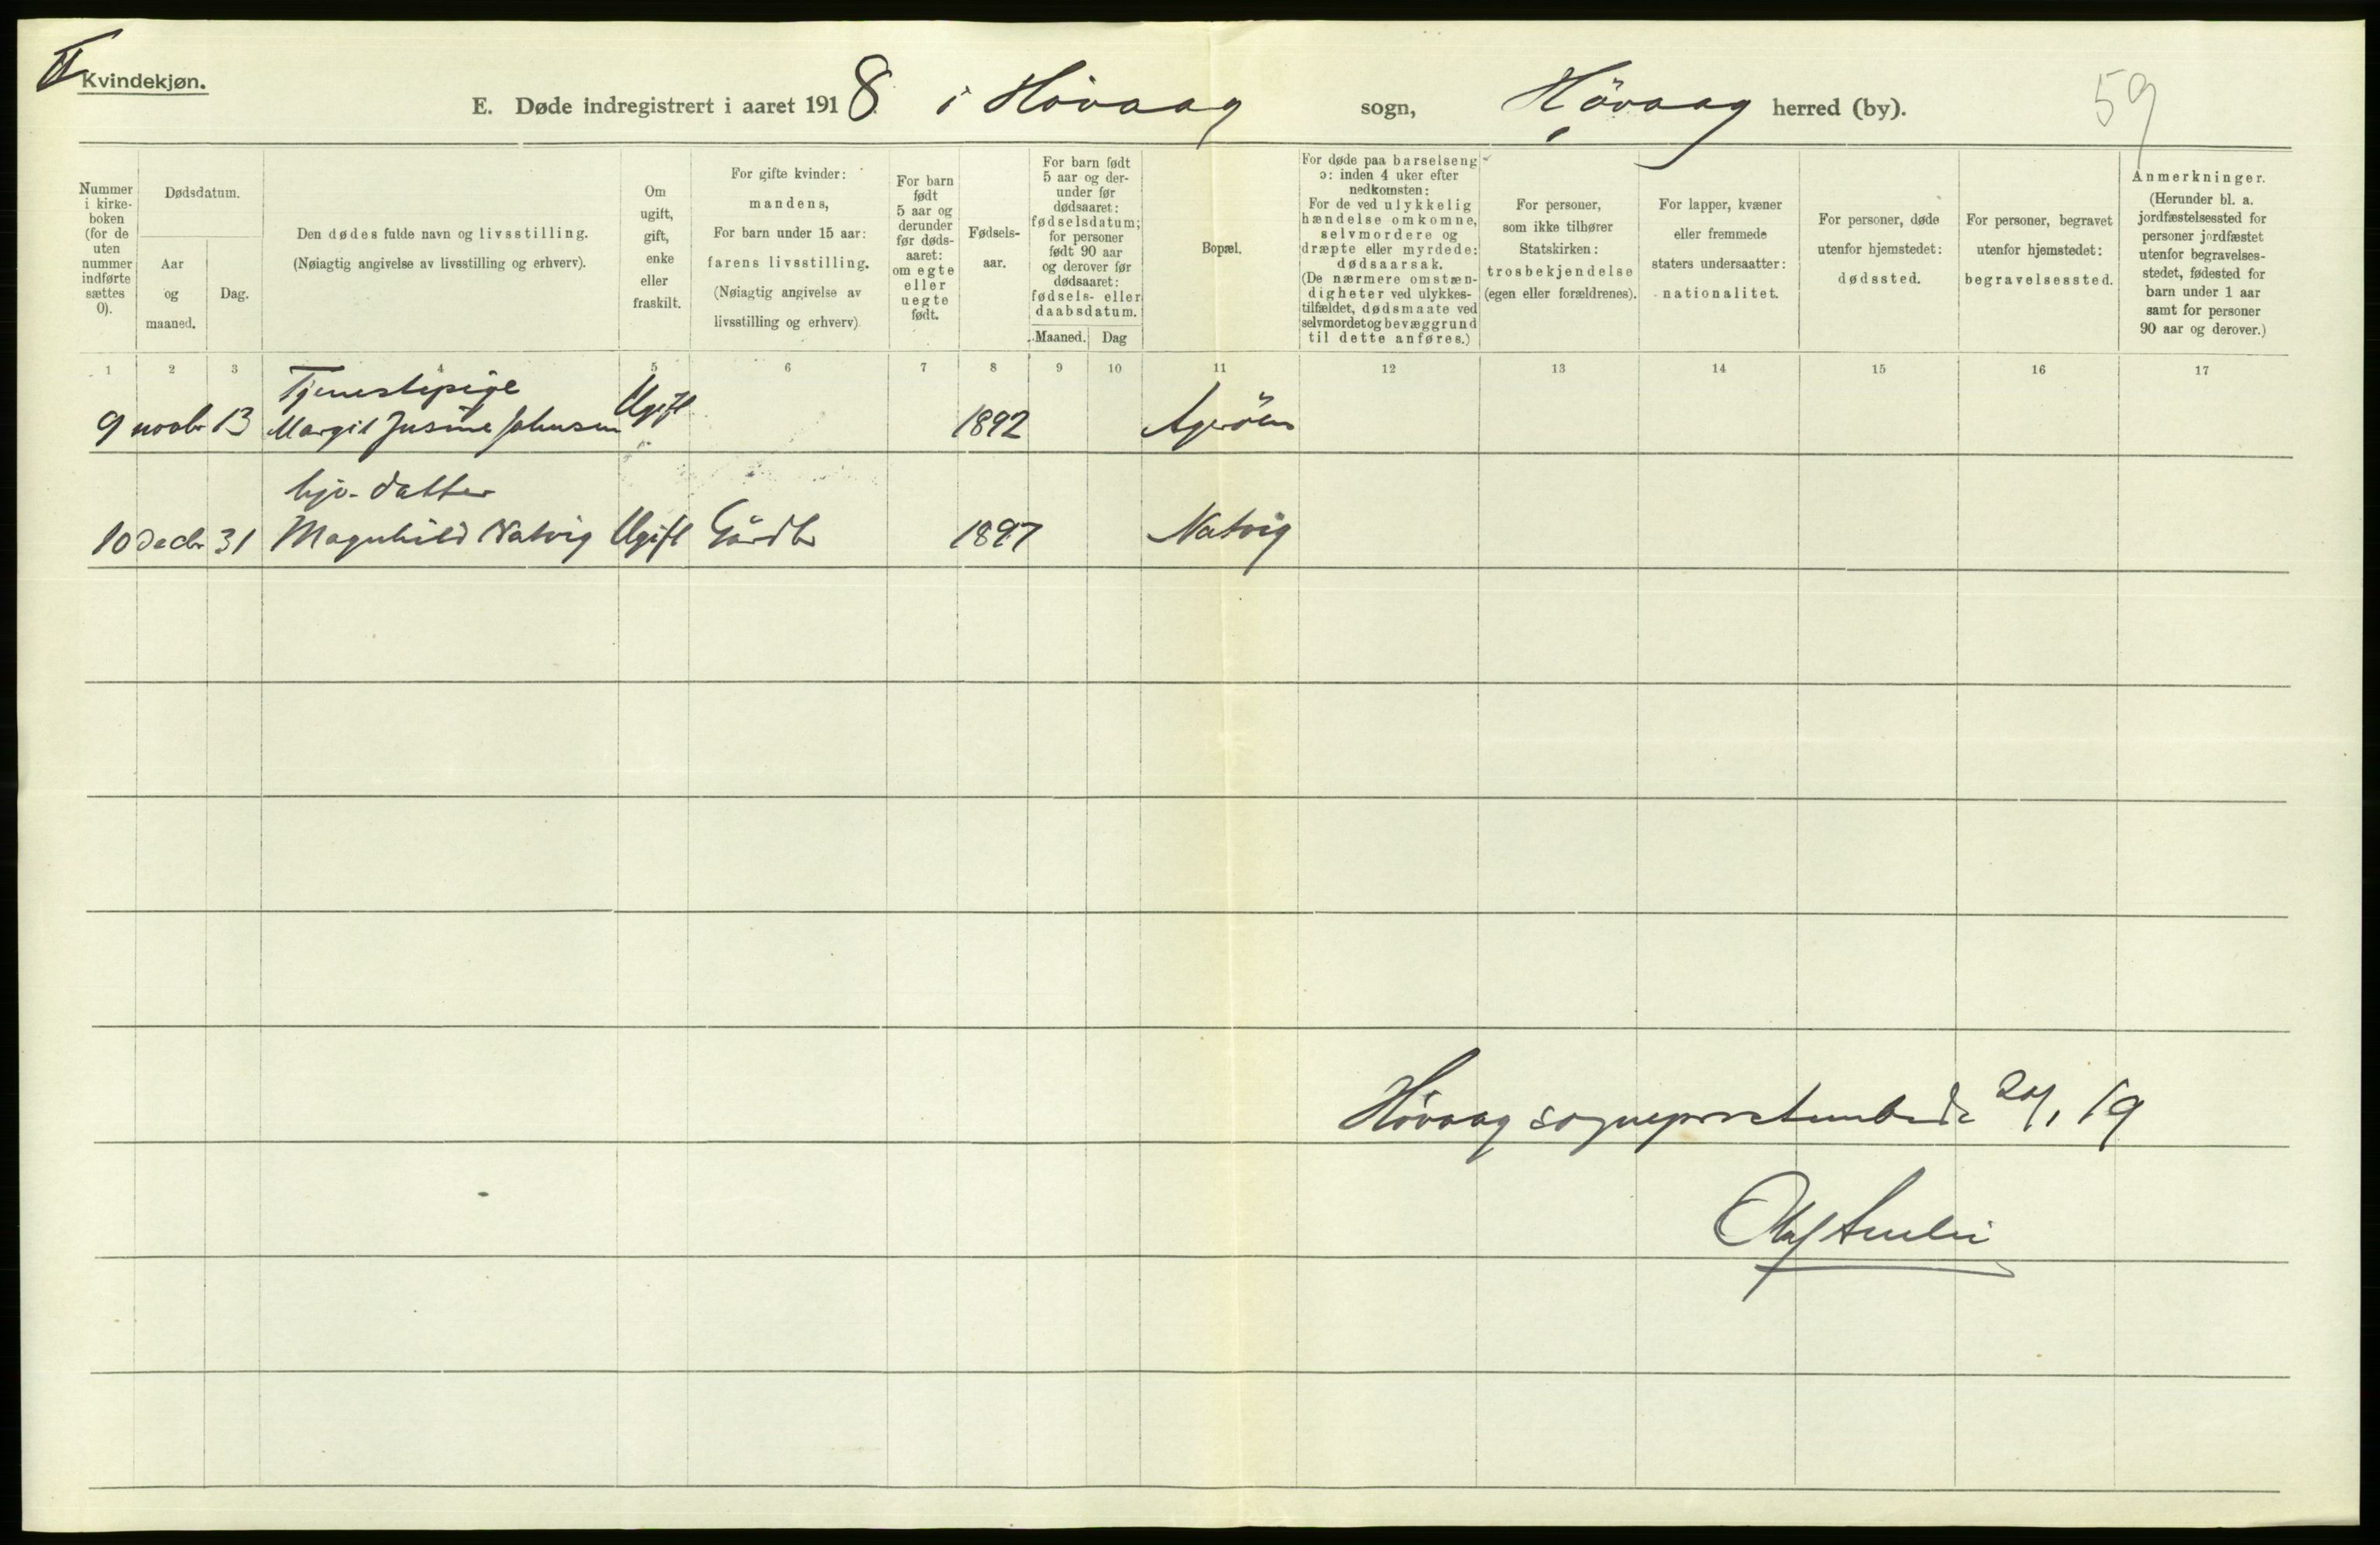 II
Kvindekjøn.
E. Døde indregistrert i aaret 1918 i Hövaag sogn, Hövaag herred (by).
59
Nummer i kirke-
boken
(for de
uten
nummer
indførte
sættes
0).
Dødsdatum.
Aar
og
maaned.
Dag.
Den dødes fulde navn og livsstilling.
(Nøiagtig angivelse av livsstilling og erhverv).
Om
ugift,
gift,
enke
eller
fraskilt.
For gifte kvinder:
mandens,
For barn under 15 aar:
farens livsstilling.
(Nøiagtig angivelse av
livsstilling og erhverv)
For barn
født
5 aar og
derunder
før døds-
aaret:
om egte
eller
uegte
født.
Fødsels-
aar.
For barn født
5 aar og der-
under før
dødsaaret:
fødselsdatum;
for personer
født 90 aar
og derover før
dødsaaret:
fødsels- eller
daabsdatum.
Maaned. Dag
Bopæl.
For døde paa barselseng
ɔ: inden 4 uker efter
nedkomsten:
For de ved ulykkelig
hændelse omkomne,
selvmordere og
dræpte eller myrdede:
dødsaarsak.
(De nærmere omstæn-
digheter ved ulykkes-
tilfældet, dødsmaate ved
selvmord et og bevæggrund
til dette anføres.)
For personer,
som ikke tilhører
Statskirken:
trosbekjendelse
(egen eller forældrenes).
For lapper, kvæner
eller fremmede
staters undersaatter:
nationalitet.
For personer, døde
utenfor hjemstedet:
dødssted.
For personer, begravet
utenfor hjemstedet:
begravelsessted.
Anmerkninger.
(Herunder bl. a.
jordfæstelsessted for
personer jordfæstet
utenfor begravelses-
stedet, fødested for
barn under 1 aar
samt for personer
90 aar og derover.)
1 2 3 4 5 6 7 8 9 10 11 12 13 14 15 16 17
Tjenestepige
9 novbr 13 Margit Jusine Johnsen Ugift 1892 Ageröen
hjv. datter
10 decbr 31 Magnhild Natvig Ugift Gårdbr 1897 Natvig
Hövaag sogneprestembede 19
Olaf